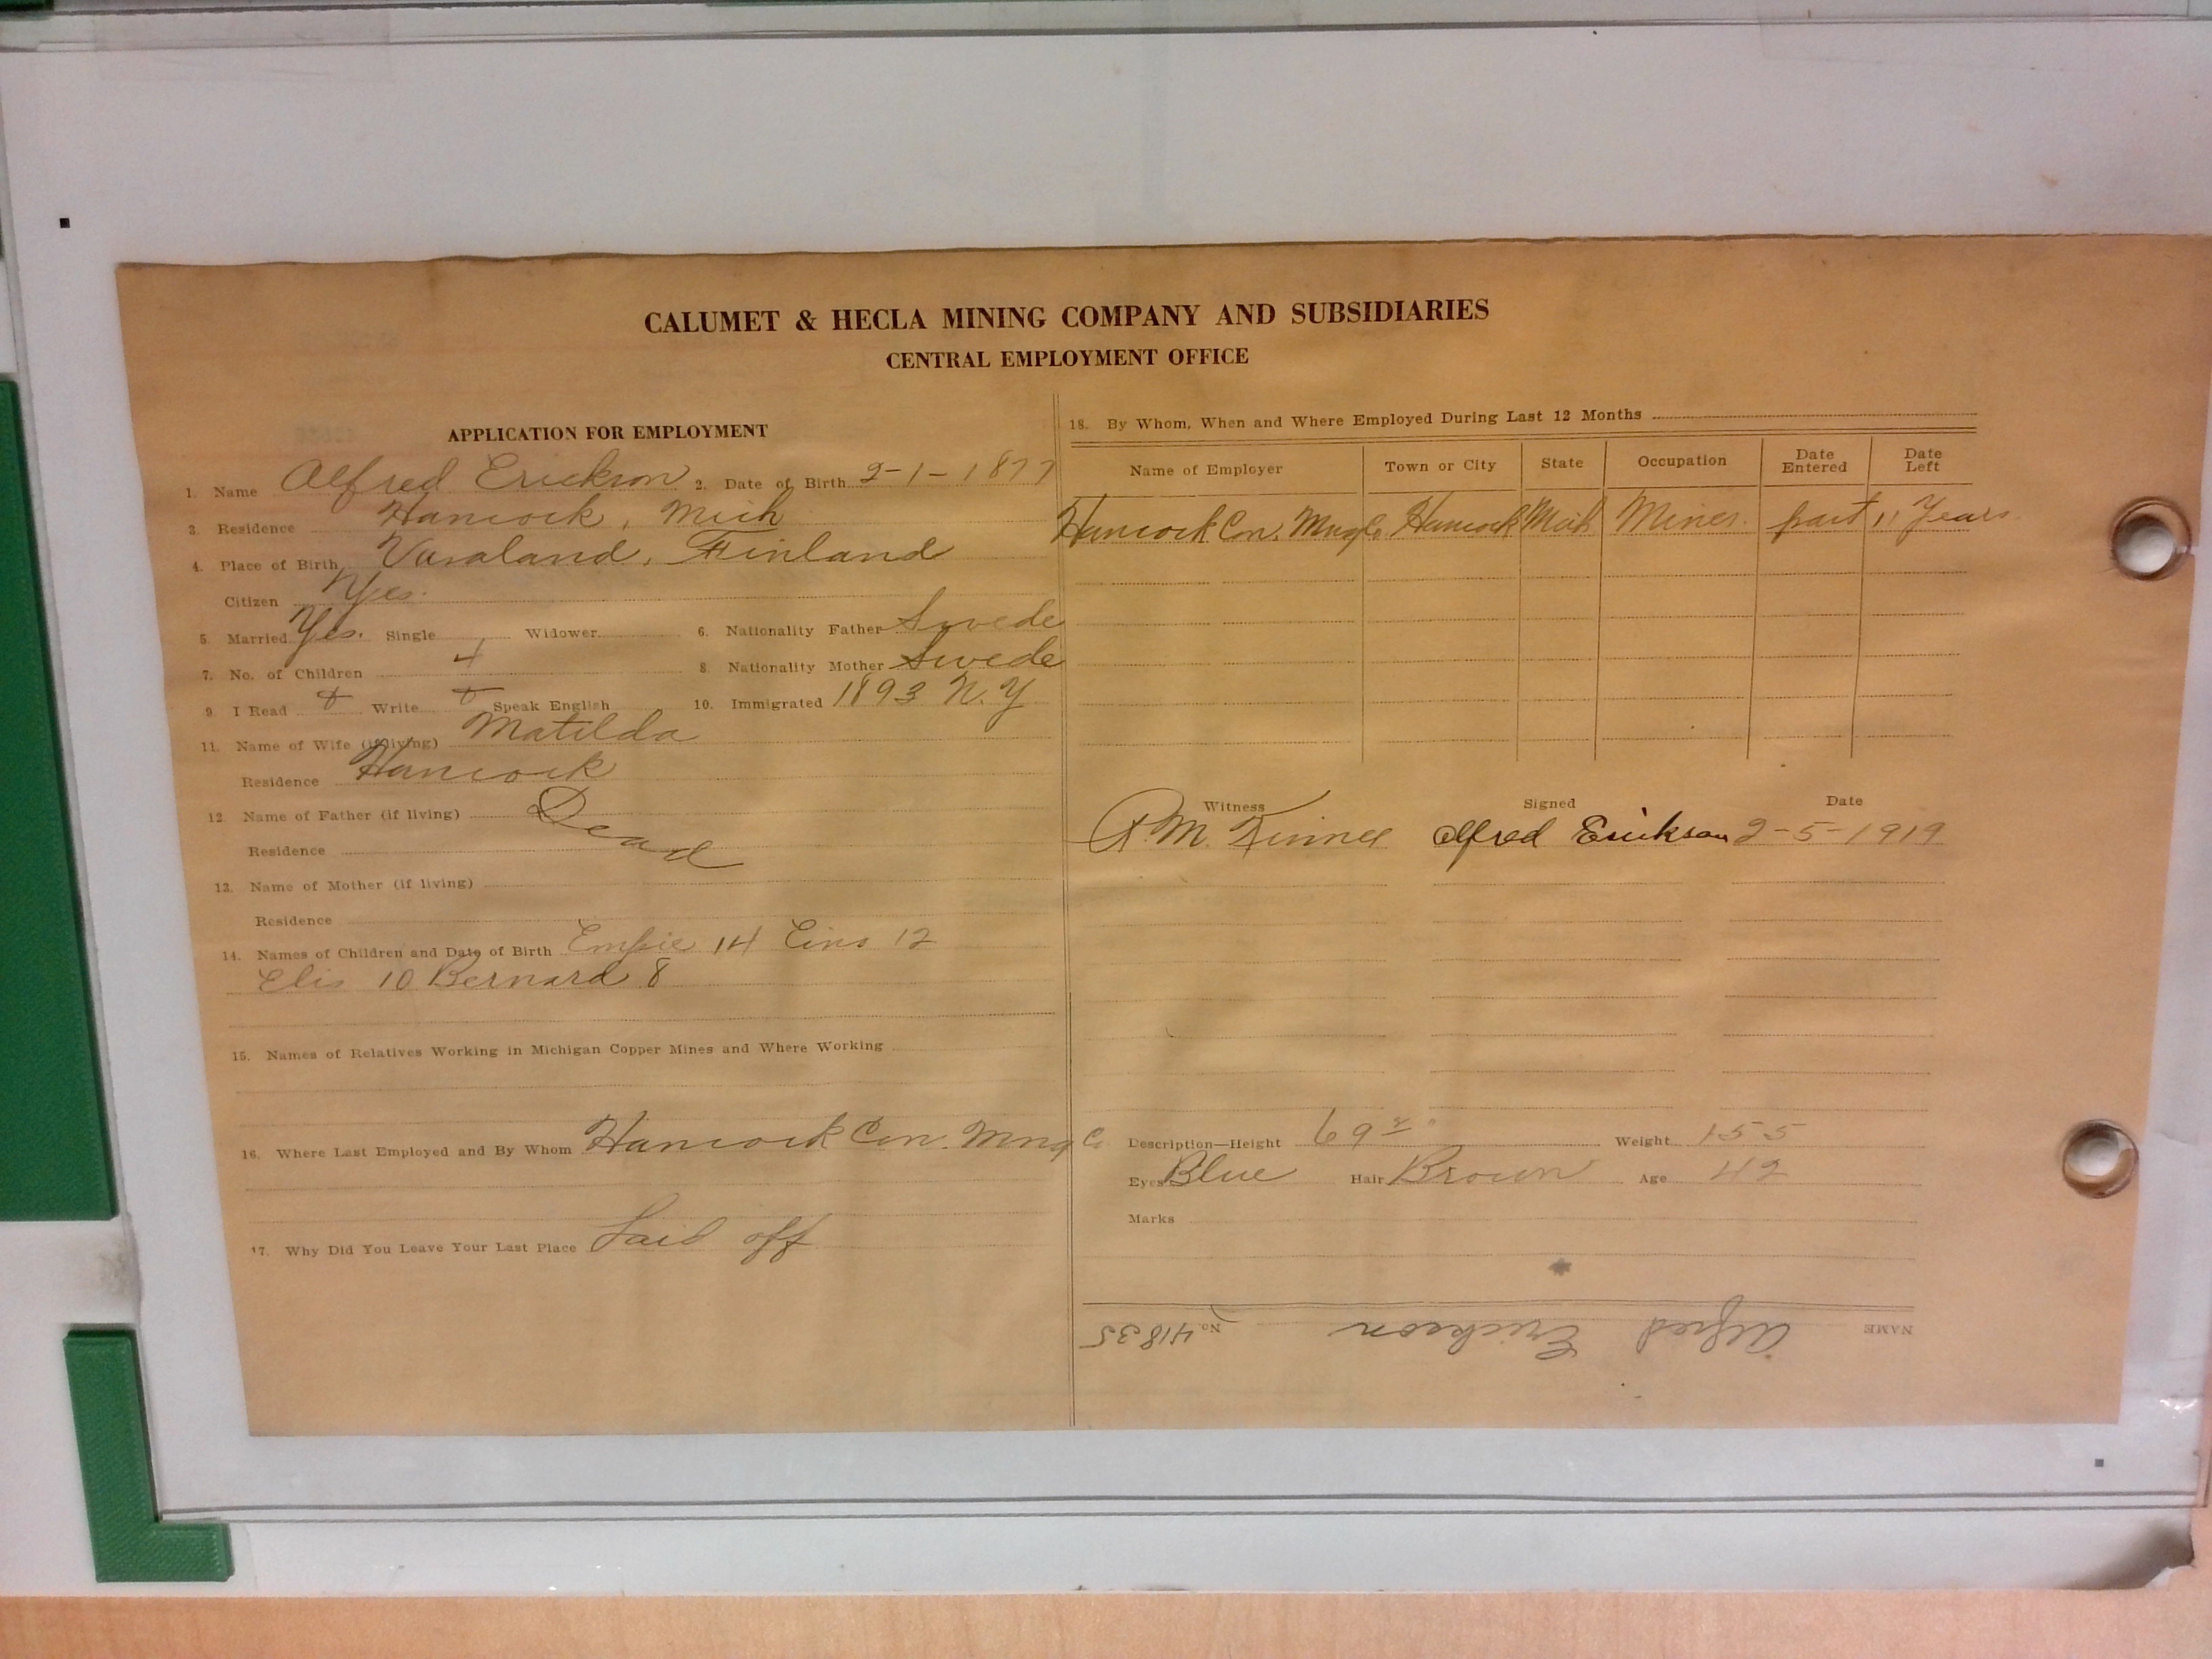 CALUMET & HECLA MINING COMPANY AND SUBSIDIARIES
CENTRAL EMPLOYMENT OFFICE
APPLICATION FOR EMPLOYMENT
1. Name Alfred Erickson 2. Date of Birth 2-1-1877
3. Residence Hancock, Mich
4. Place of Birth Vasaland, Finland
Citizen Yes.
5. Married Yes. Single Widower 6. Nationality Father Swede
7. No. of Children 4 8. Nationality Mother Swede
9. I Read Write Speak English 10. Immigrated 1893 N.Y
11. Name of Wife (if living) Matilda
Residence Hancock
12. Name of Father (if living) Dead
Residence
13. Name of Mother (if living)
Residence
14. Names of Children and Date of Birth 14 12
Elis 10 Bernard 8
15. Names of Relatives Working in Michigan Copper Mines and Where Working
16. Where Last Employed and By Whom Hancock Con. Mng Co
17. Why Did You Leave Your Last Place Laid off
18. By Whom, When and Where Employed During Last 12 Months
Name of Employer Town or City State Occupation Date Entered Date Left
Hancock Con. Mng Co. Hancock Mich Miner. past 11 Years
Witness Signed Date
M. Alfred Erickson 2-5-1919
Description—Height 69 Weight 155
Eyes Blue Hair Brown Age 42
Marks
NAME Alfred Erickson No. 41835